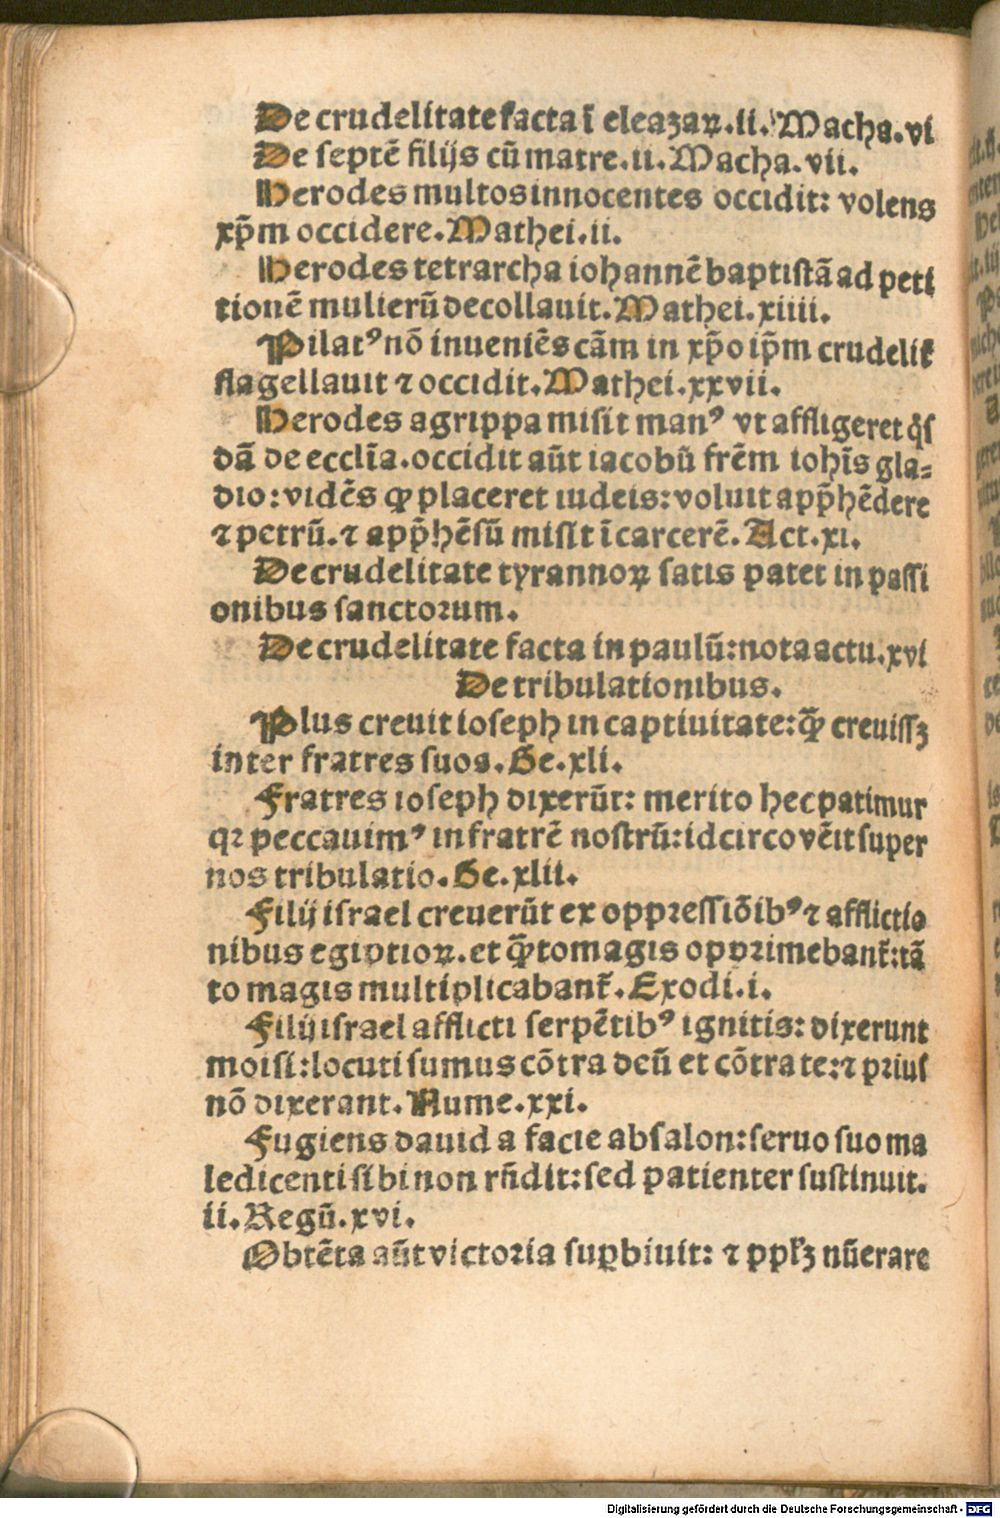 De crudelitate facta ī eleazaꝝ.ii. Macha.vi
De ſeptē filijs cū matre.ii. Macha.vii.
Herodes multos innocentes occidit: volens
xp̄m occidere. Mathei.ii.
Herodes tetrarcha iohannē baptiſtā ad peti
tionē mulierū decollauit. Mathei.xiiii.
Pilatꝰ nō inueniēs cām in xp̄o ip̄m crudeliť
flagellauit ⁊ occidit. Mathei.xxvii.
Herodes agrippa miſit manꝰ vt affligeret q̇ſ
dā de eccl̄ia. occidit aūt iacobū frēm ioh̄is gla⸗
dio: vidēs ꝙ placeret iudeis: voluit app̄hēdere
⁊ petrū. ⁊ app̄hēſū miſit ī carcerē. Act.xi.
De crudelitate tyrannoꝝ ſatis patet in paſſi
onibus ſanctoꝛum.
De crudelitate facta in paulū: nota actu.xvi
De tribulationibus.
Plus creuit ioſeph in captiuitate: q̄ꝫ creuiſſꝫ
inter fratres ſuos. Ge.xli.
Fratres ioſeph dixerūt: merito hec patimur
qꝛ peccauimꝰ in fratrē noſtrū: idcirco vēit ſuper
nos tribulatio. Ge.xlii.
Filij iſrael creuerūt ex oppꝛeſſiōibꝰ ⁊ afflictio
nibus egiptioꝝ. et q̄ꝫto magis oppꝛimebanť: tā
to magis multiplicabanť. Exodi.i.
Filij iſrael afflicti ſerpētibꝰ ignitis: dixerunt
moiſi: locuti ſumus cōtra deū et cōtra te: ⁊ pꝛiuſ
nō dixerant. Nume.xxi.
Fugiens dauid a facie abſalon: ſeruo ſuo ma
ledicenti ſibi non rn̄dit: ſed patienter ſuſtinuit.
ii. Regū.xvi.
Obtēta aūt victoꝛia ſuꝑbiuit: ⁊ ppl̓ꝫ nūerare
Digitalisierung gefördert durch die Deutsche Forschungsgemeinschaft - DFG